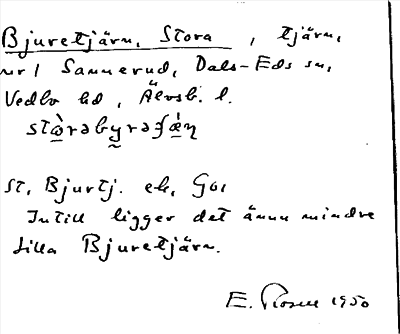 Bjuretjärn, Stora, tjärn,
nr 1 Sannerud, Dals-Eds sn,
Vedbo hd, Älvsb. l.
St. Bjurtj. ek, Gsi
Intill ligger det ännu mindre
Lilla Bjuretjärn.
E. Rosell 1950